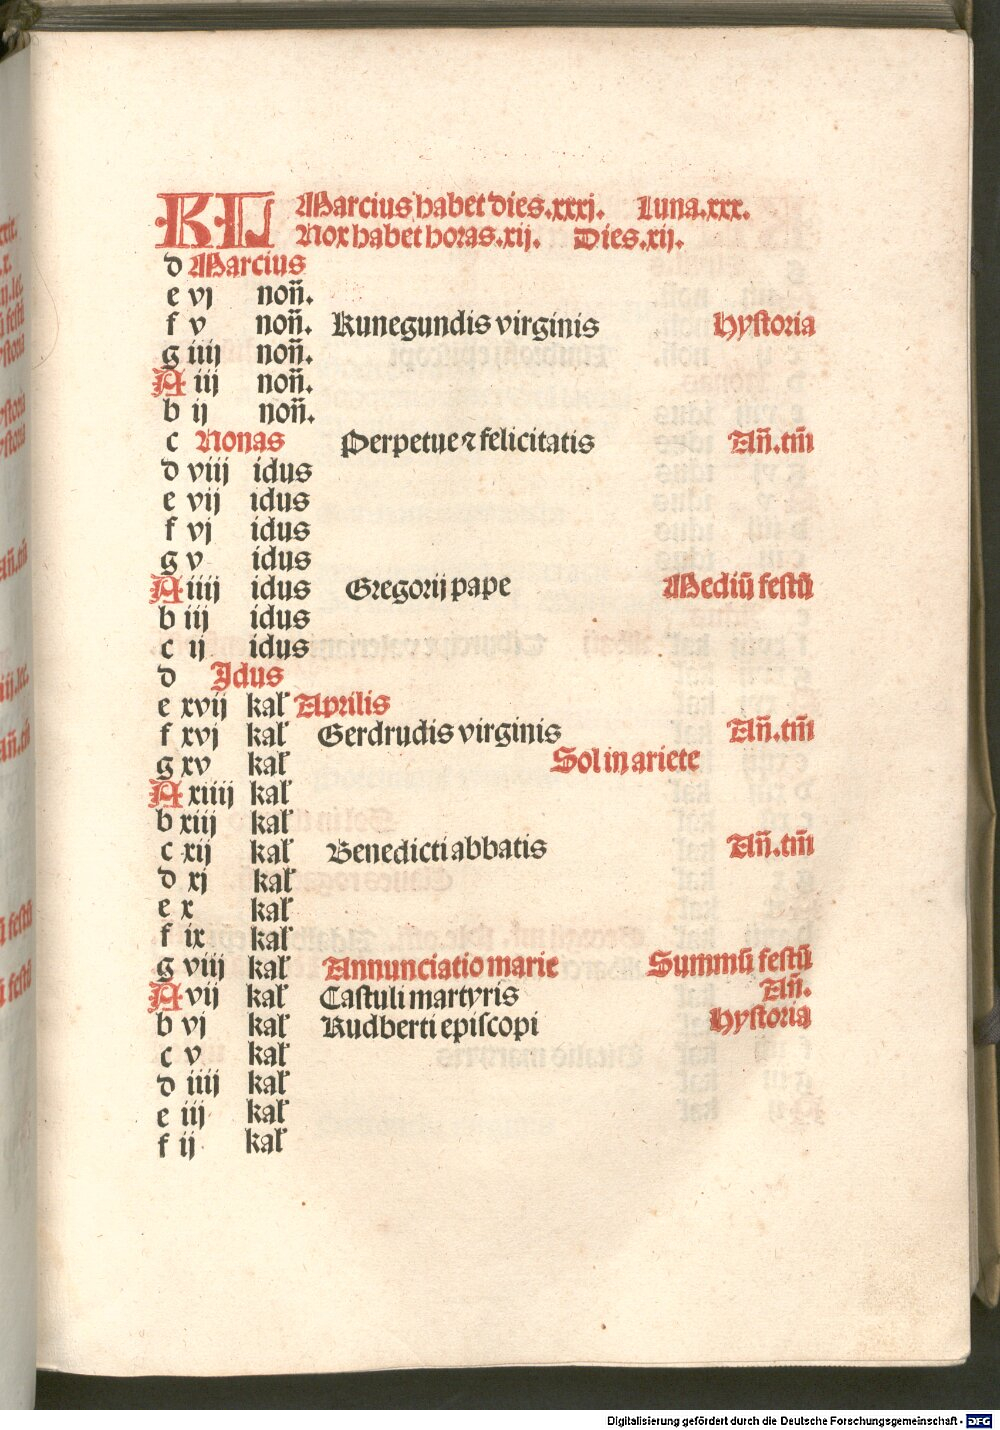 KL Marcius habet dies.xxxj. Luna.xxx.
Nox habet horas.xij. Dies.xij.
d Marcius
e vj non̄.
f v non̄. Kunegundis virginis Hystoria
g iiij non̄.
A iij non̄.
b ij non̄.
c Nonas Perpetue ⁊ felicitatis An̄.tm̄
d viij idus
e vij idus
f vj idus
g v idus
A iiij idus Gregorij pape Mediū festū
b iij idus
c ij idus
d Idus
e xvij kal' Aprilis
f xvj kal' Gerdrudis virginis An̄.tm̄
g xv kal' Sol in ariete
A xiiij kal'
b xiij kal'
c xij kal' Benedicti abbatis An̄.tm̄
d xj kal'
e x kal'
f ix kal'
g viij kal' Annunciatio marie Summū festū
A vij kal' Castuli martyris An̄.
b vj kal' Rudberti episcopi Hystoria
c v kal'
d iiij kal'
e iij kal'
f ij kal'
Digitalisierung gefördert durch die Deutsche Forschungsgemeinschaft - DFG